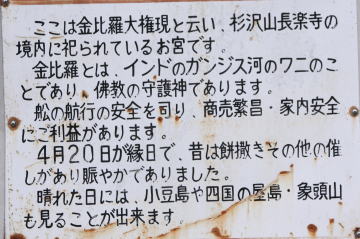 ここは金比羅大権現と云い、杉沢山長楽寺の
境内に祀られているお宮です。
金比羅とは、インドのガンジス河のワニのこ
とであり、佛教の守護神であります。
舩の航行の安全を司り、商売繁昌・家内安全
にご利益があります。
4月20日が縁日で、昔は餅撒きその他の催
しがあり賑やかでありました。
晴れた日には、小豆島や四国の屋島・象頭山
も見ることが出来ます.